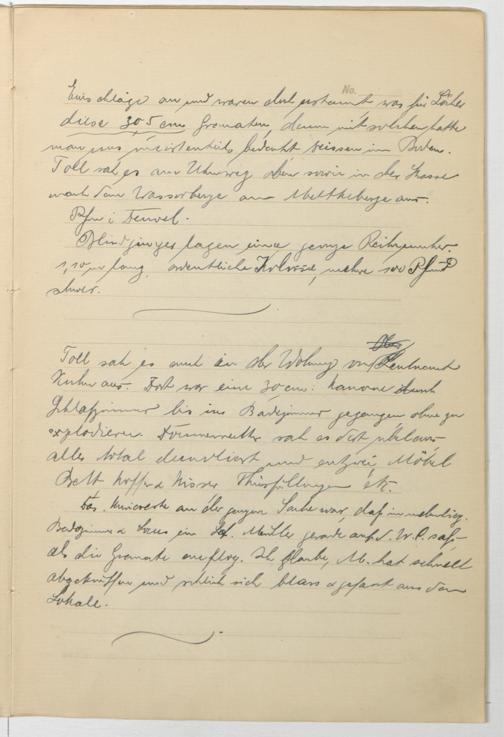 No.
Einschläge an und waren doch erstaunt was für Löcher
diese 30,5 cm Granaten, denn mit solchen hatte
man uns meistenteils bedacht reissen im Boden.
Toll sah es am Uhuweg oben sowie in der Strasse
nach dem Wasserberge am Moltkeberge aus.
Pfui Deuwel.
Blindgänger lagen eine ganze Reihe umher.
1,10 m lang, ordentliche Kolosse, mehre 100 Pfund
schwer.
Toll sah es auch in der Wohnung von Leutnant
Kuhn aus. Dort war eine 30 cm: Kanone durch
Schlafzimmer bis ins Badezimmer gegangen ohne zu
explodieren. Donnerwetter sah es dort übel aus
alles total demoliert und entzwei, Möbel
Bett Koffer Kissen Thürfüllungen etc.
Das an der ganzen Sache war, daß im nebenlieg.
Badezimmer Müller gerade auf d. W.C. saß
als die Granate einflog. Ich glaube, M. hat schnell
abgekniffen und schlich sich blass gefasst aus dem
Lokale.